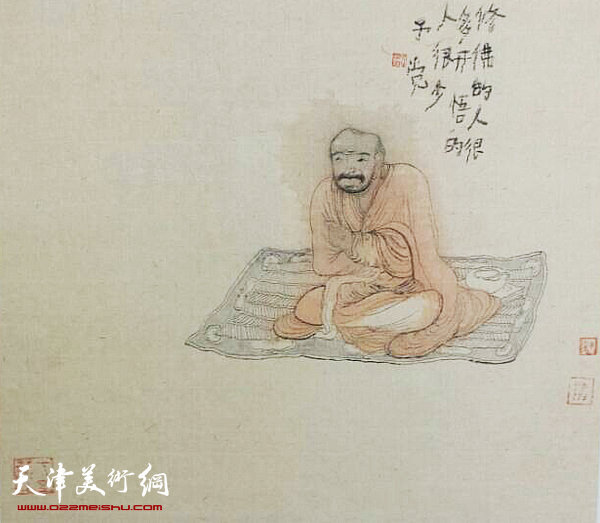 修佛的人很
多开悟的
人很少
子觉
天津美術網
www.022meishu.com